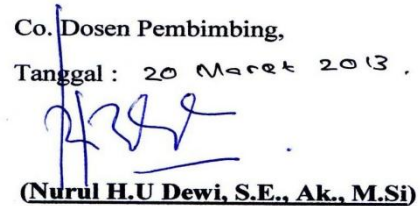 Co. Dosen Pembimbing,
Tanggal : 20 Maret 2013.
(Nurul H.U Dewi, S.E., Ak., M.Si)